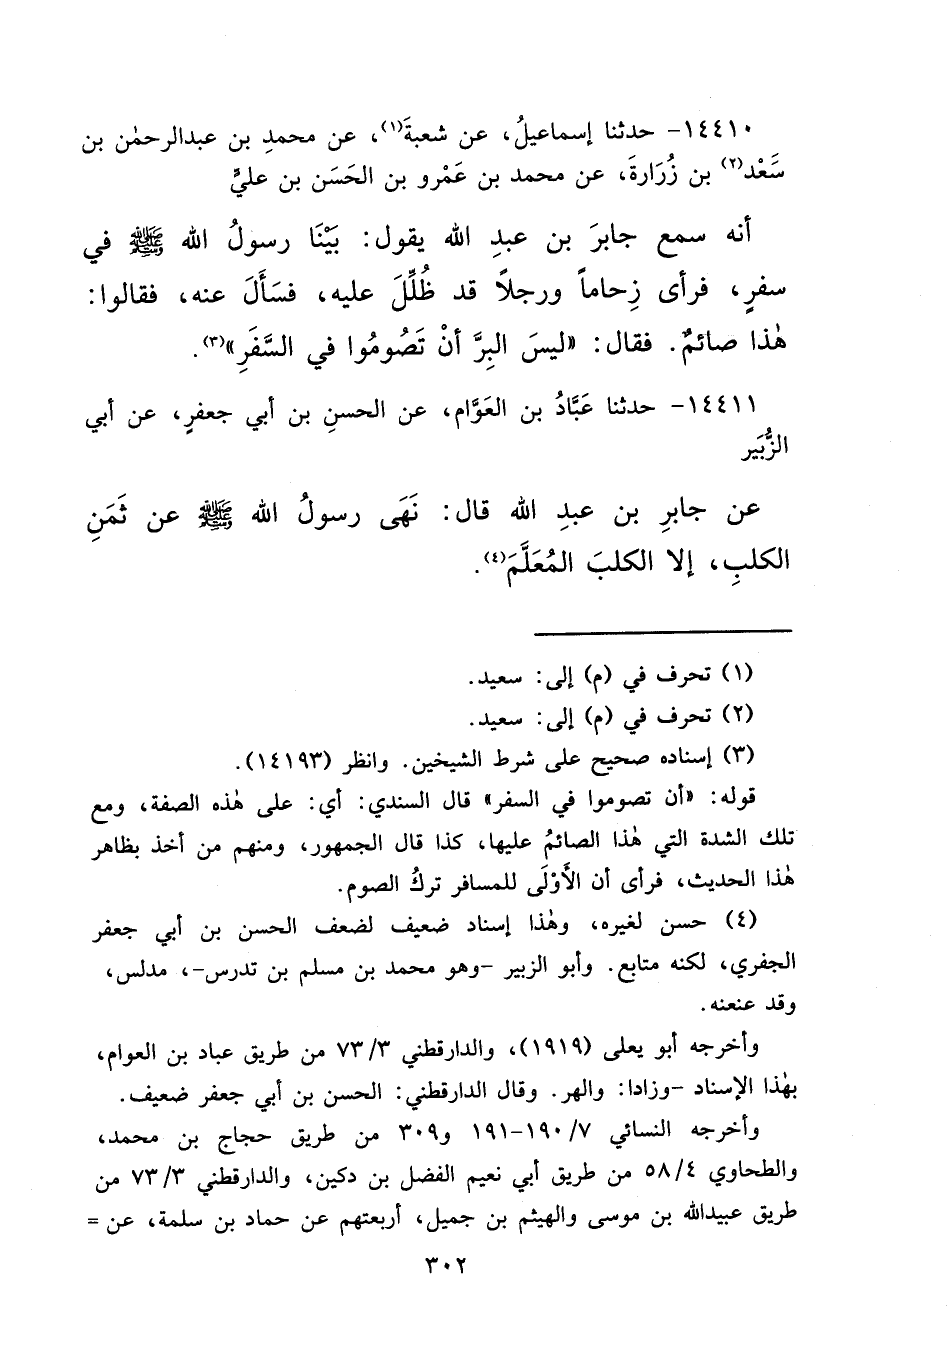 ١٤٤١٠- حدثنا إسماعيلُ، عن شعبةَ(١)، عن محمدِ بن عبدالرحمٰن بن
سَعْد(٢) بن زُرَارةَ، عن محمد بن عَمْرو بن الحَسَن بن عليٍّ
أنه سمع جابرَ بن عبدِ الله يقول: بَيْنَا رسولُ الله ﷺ في
سفرٍ، فرأى زِحاماً ورجلاً قد ظُلِّلَ عليه، فسَأَلَ عنه، فقالوا:
هٰذا صائمٌ. فقال: «ليسَ البِرَّ أنْ تَصُومُوا في السَّفَرِ»(٣).
١٤٤١١- حدثنا عَبَّادُ بن العَوَّام، عن الحسنِ بن أبي جعفرٍ، عن أبي
الزُّبَير
عن جابرِ بن عبدِ الله قال: نَهَى رسولُ الله ﷺ عن ثَمَنِ
الكلبِ، إلا الكلبَ المُعَلَّمَ(٤).
(١) تحرف في (م) إلى: سعيد.
(٢) تحرف في (م) إلى: سعيد.
(٣) إسناده صحيح على شرط الشيخين. وانظر (١٤١٩٣).
قوله: «أن تصوموا في السفر» قال السندي: أي: على هٰذه الصفة، ومع
تلك الشدة التي هٰذا الصائمُ عليها، كذا قال الجمهور، ومنهم من أخذ بظاهر
هٰذا الحديث، فرأى أن الأَوْلَى للمسافر تركُ الصوم.
(٤) حسن لغيره، وهٰذا إسناد ضعيف لضعف الحسن بن أبي جعفر
الجفري، لكنه متابع. وأبو الزبير -وهو محمد بن مسلم بن تدرس-، مدلس،
وقد عنعنه.
وأخرجه أبو يعلى (١٩١٩)، والدارقطني ٧٣/٣ من طريق عباد بن العوام،
بهٰذا الإسناد -وزادا: والهر. وقال الدارقطني: الحسن بن أبي جعفر ضعيف.
وأخرجه النسائي ١٩٠/٧-١٩١ و٣٠٩ من طريق حجاج بن محمد،
والطحاوي ٥٨/٤ من طريق أبي نعيم الفضل بن دكين، والدارقطني ٧٣/٣ من
طريق عبيدالله بن موسى والهيثم بن جميل، أربعتهم عن حماد بن سلمة، عن =
٣٠٢